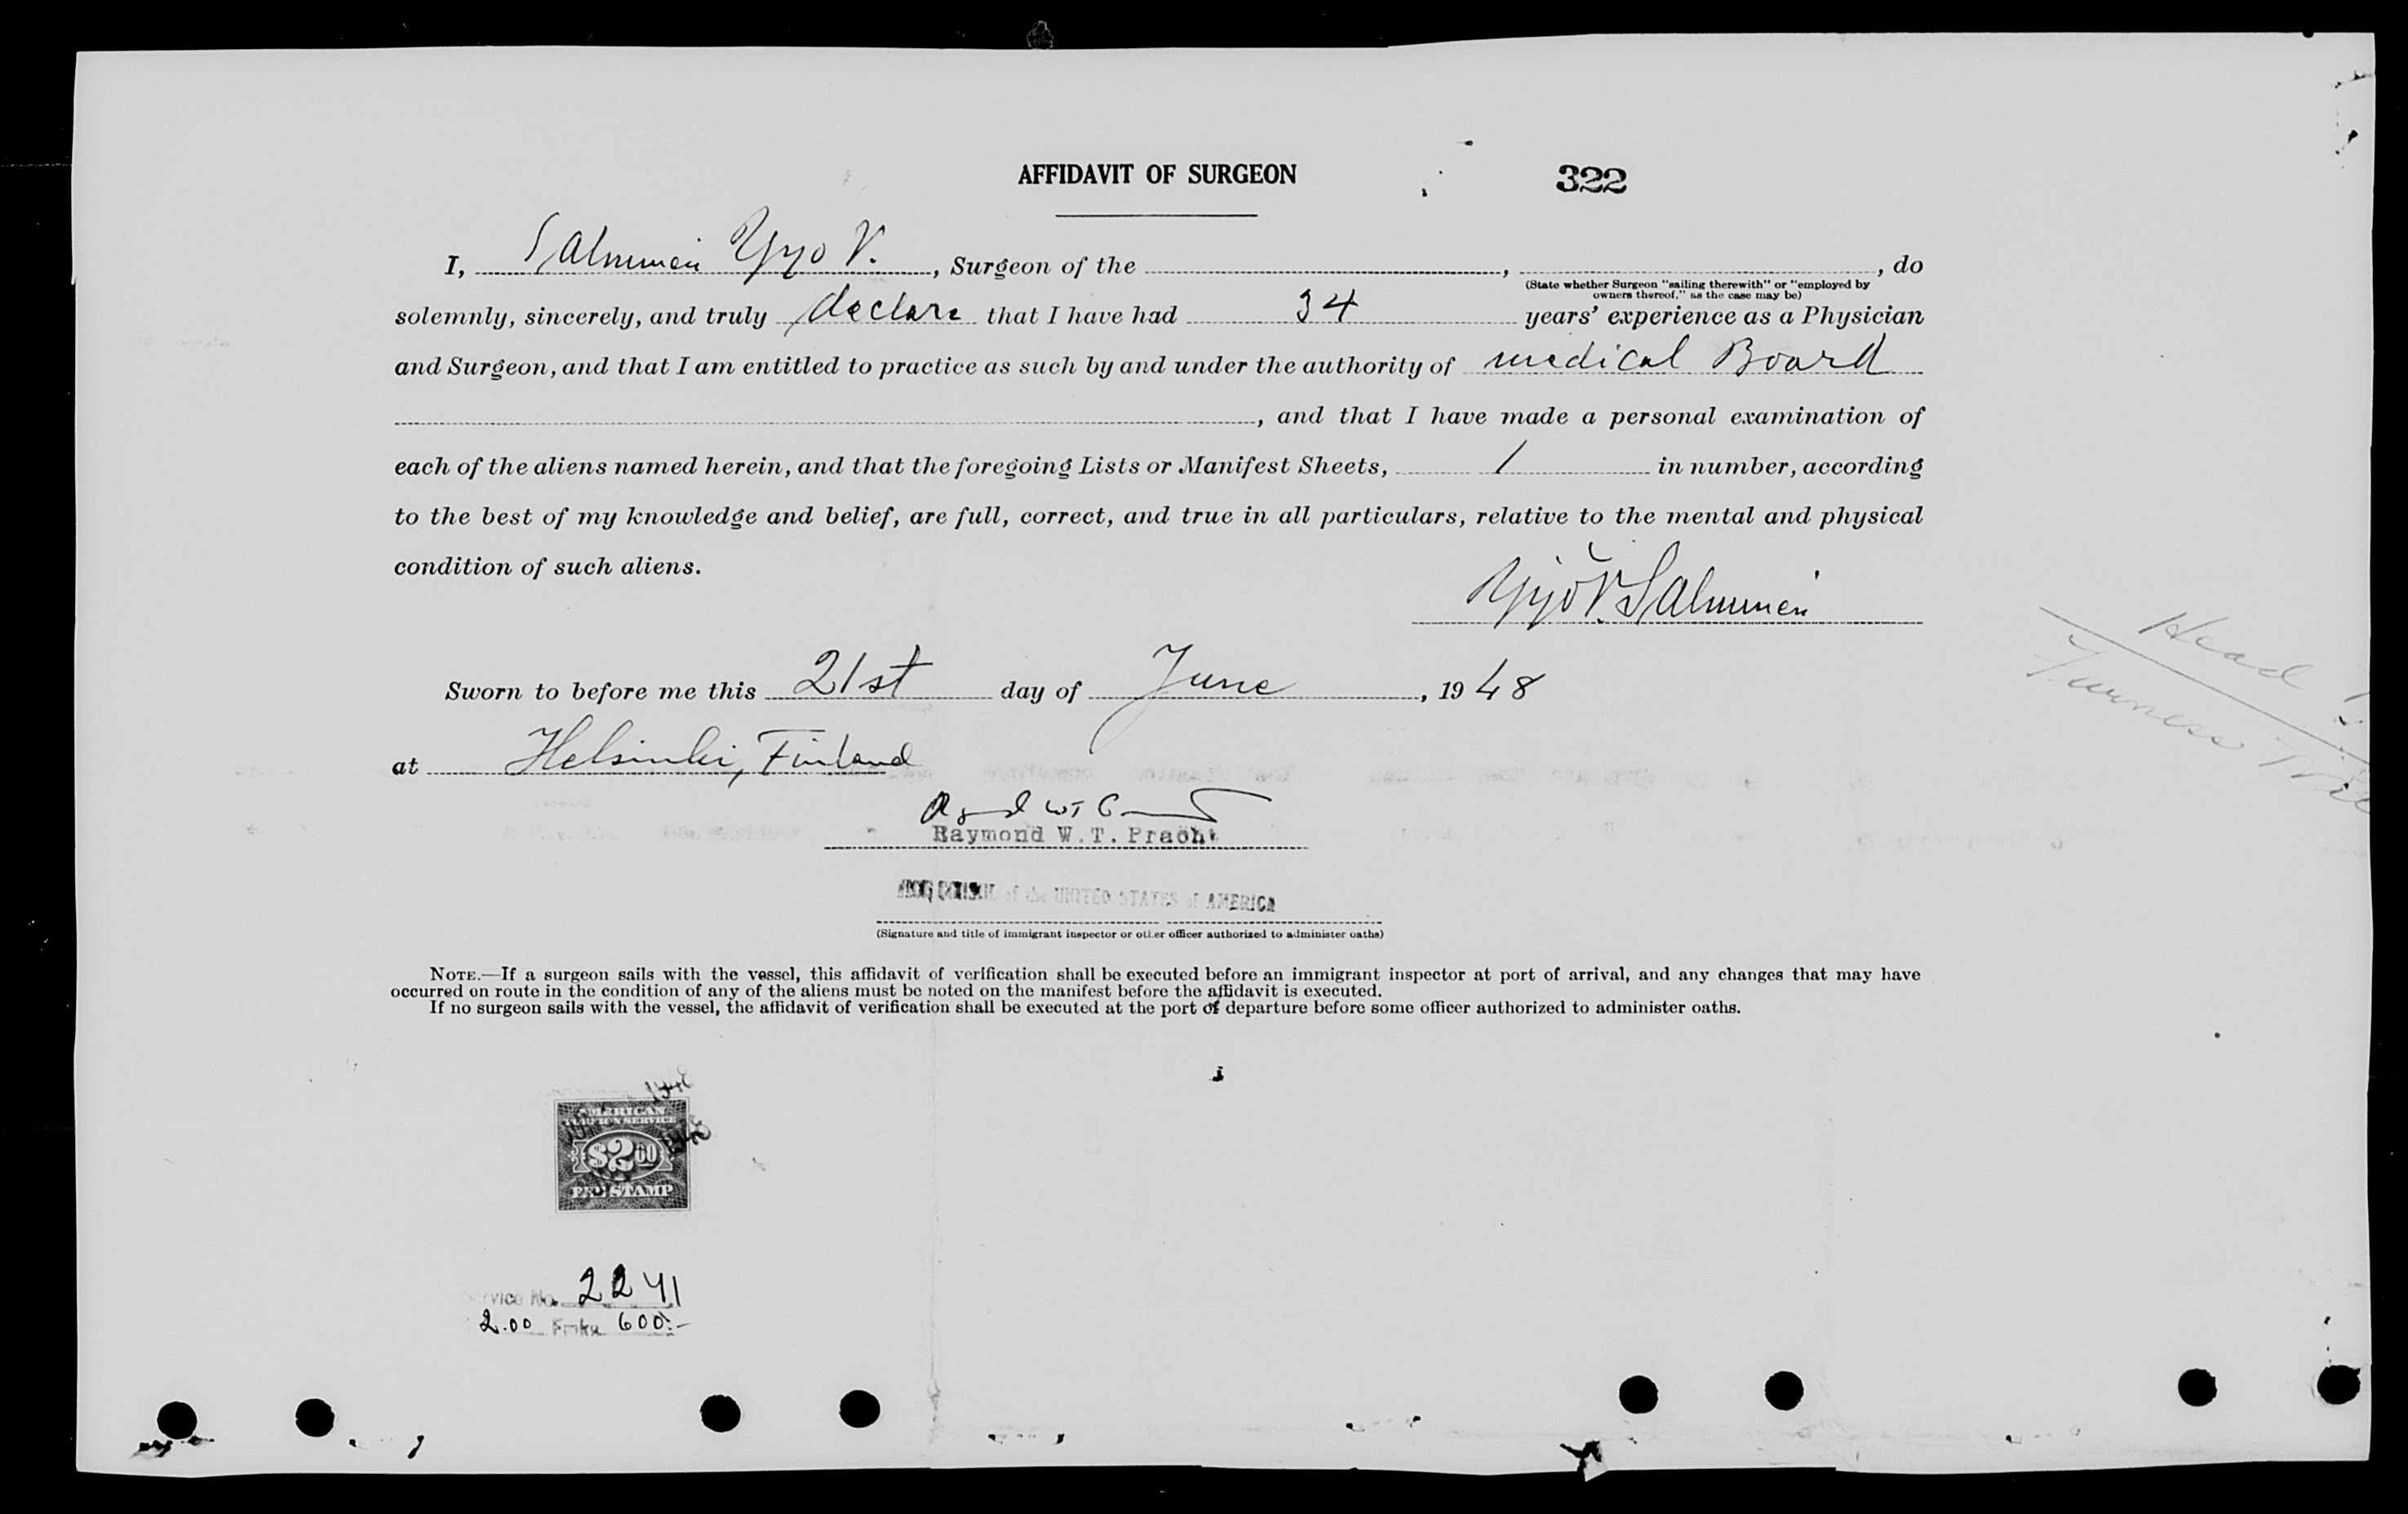 AFFIDAVIT OF SURGEON
322
I, Salminen Yrjö V., Surgeon of the , , do
(State whether Surgeon "sailing therewith" or "employed by
owners thereof," as the case may be)
solemnly, sincerely, and truly declare that I have had 34 years' experience as a Physician
and Surgeon, and that I am entitled to practice as such by and under the authority of medical Board
, and that I have made a personal examination of
each of the aliens named herein, and that the foregoing Lists or Manifest Sheets, 1 in number, according
to the best of my knowledge and belief, are full, correct, and true in all particulars, relative to the mental and physical
condition of such aliens.
Yrjö V. Salminen
Sworn to before me this 21st day of June, 1948
at Helsinki, Finland
Raymond W.T. Pracht
of the UNITED STATES of AMERICA
(Signature and title of immigrant inspector or other officer authorized to administer oaths)
NOTE.—If a surgeon sails with the vessel, this affidavit of verification shall be executed before an immigrant inspector at port of arrival, and any changes that may have
occurred on route in the condition of any of the aliens must be noted on the manifest before the affidavit is executed.
If no surgeon sails with the vessel, the affidavit of verification shall be executed at the port of departure before some officer authorized to administer oaths.
Head
AMERICAN
FOREIGN SERVICE
$2.00
FEE STAMP
Service No. 2241
2.00 Fmks 600:-